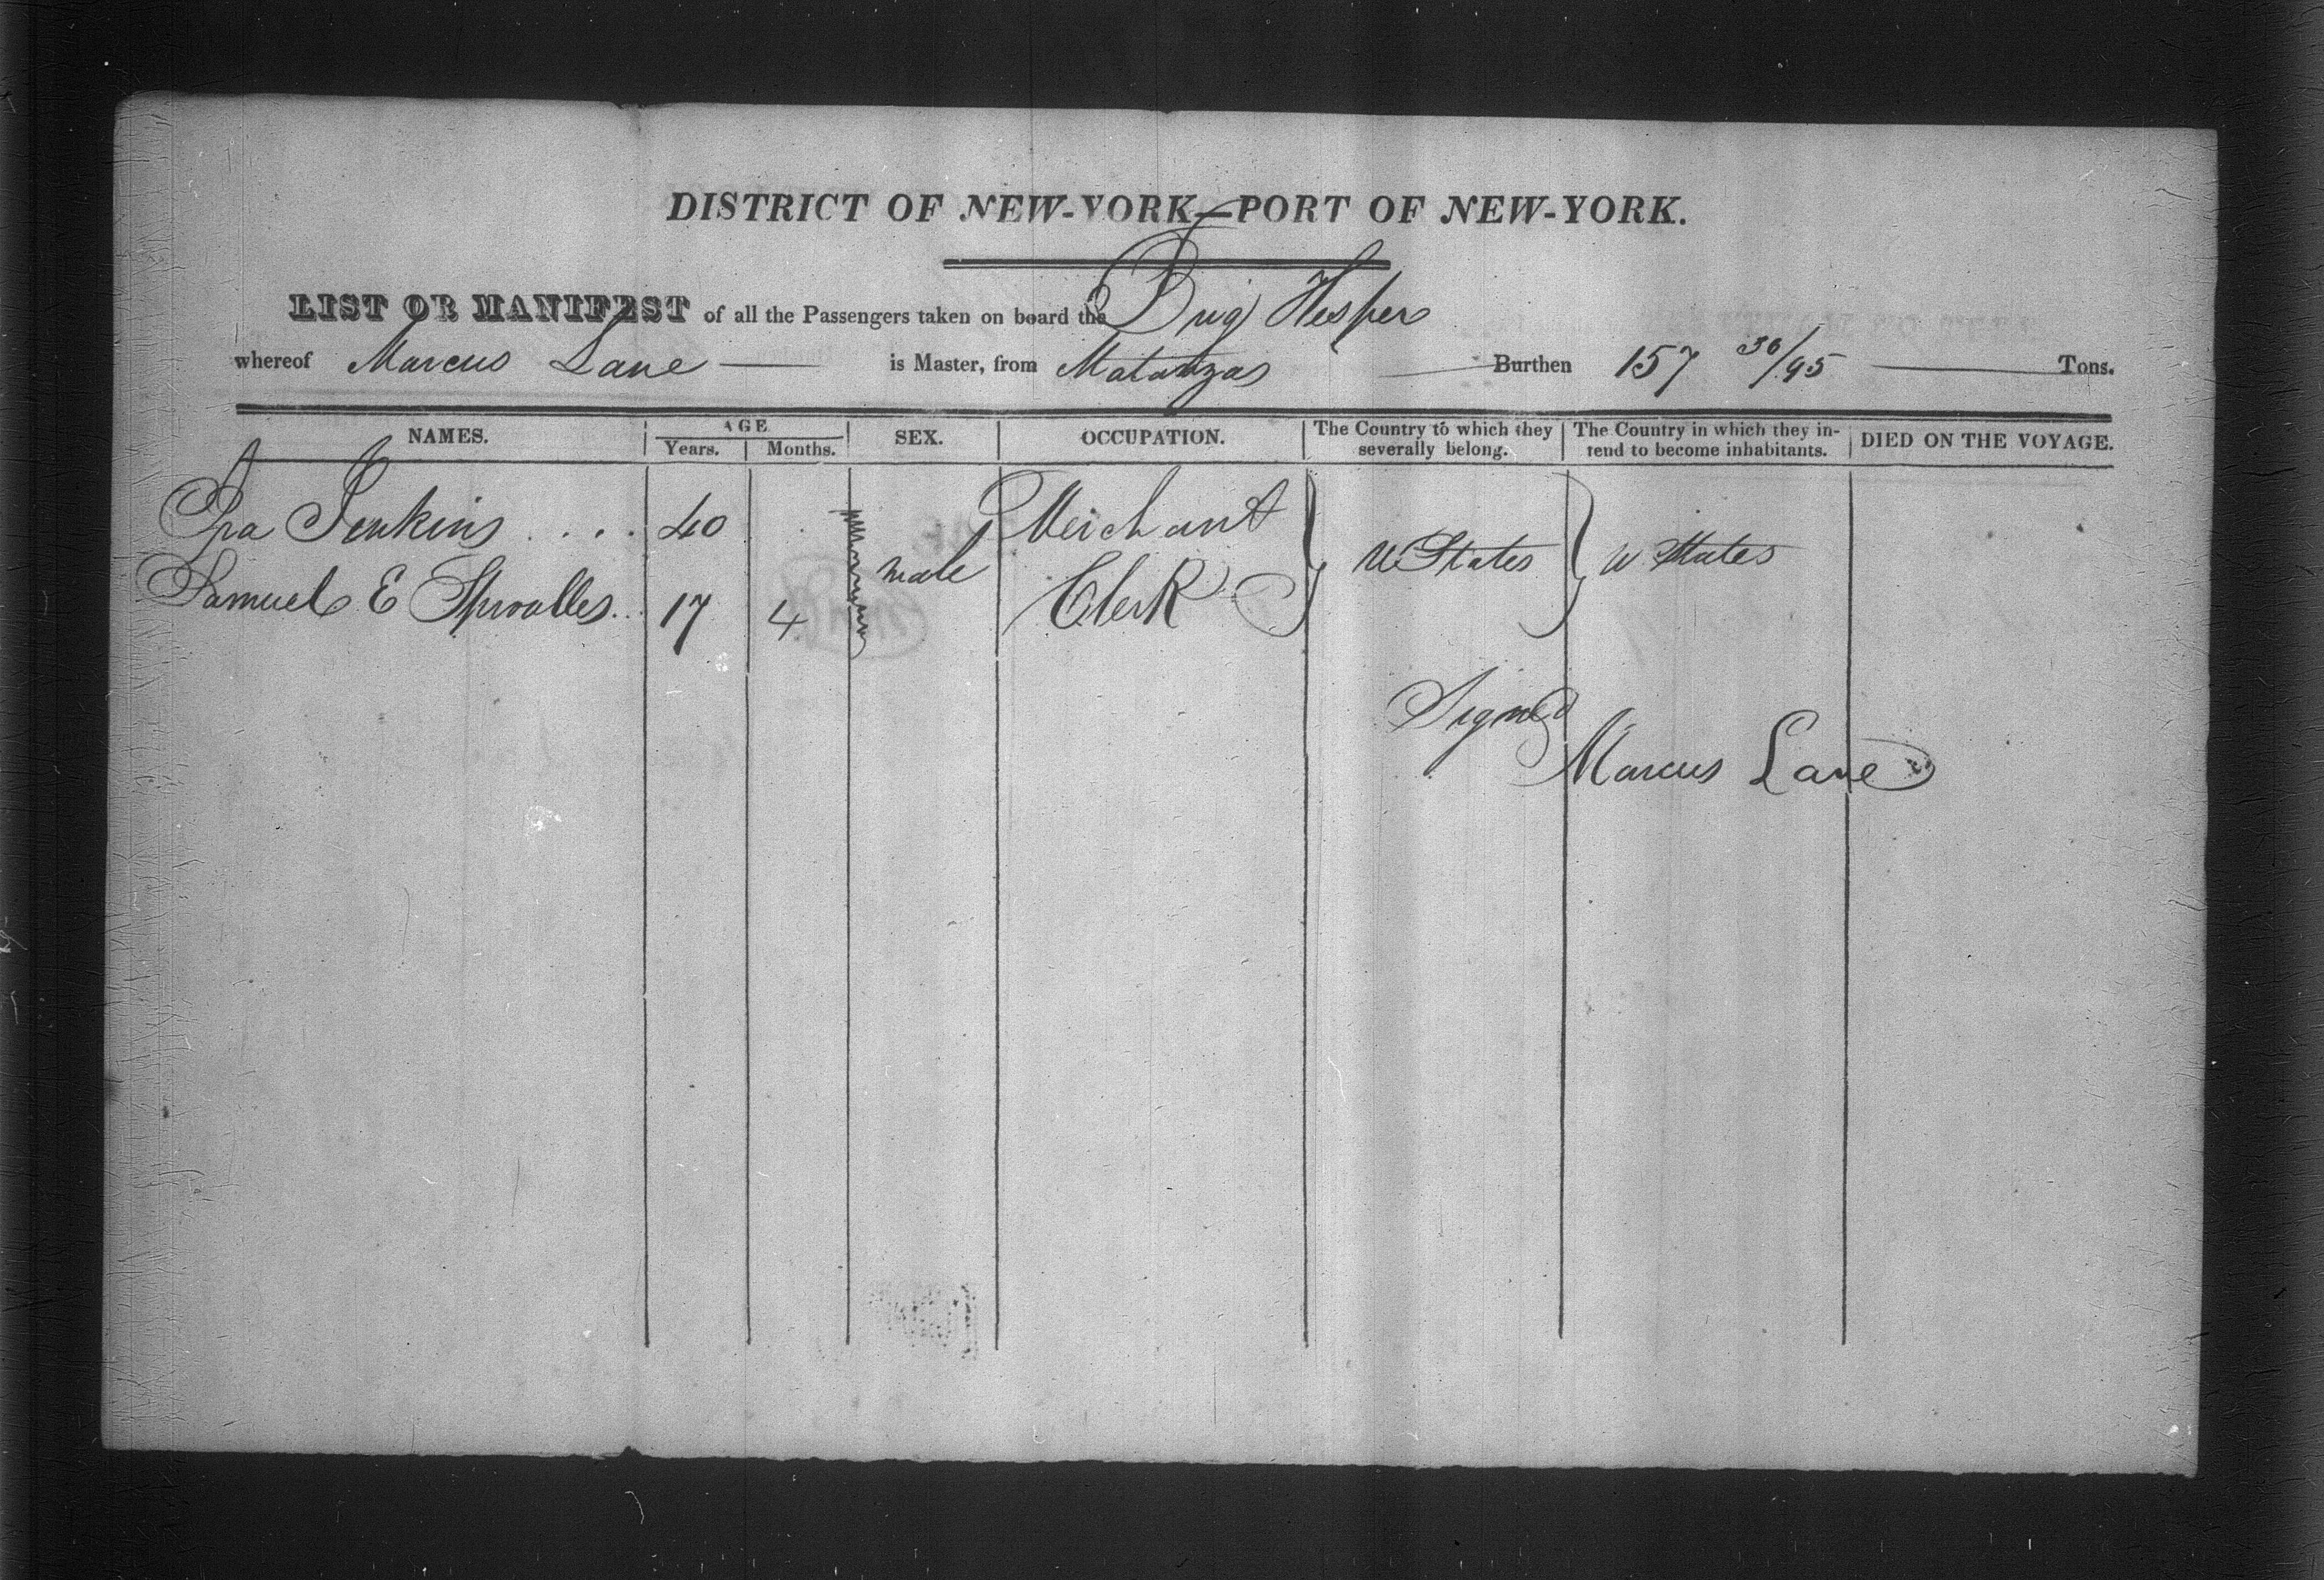 DISTRICT OF NEW-YORK—PORT OF NEW-YORK.
LIST OR MANIFEST of all the Passengers taken on board the Brig Hesper
whereof Marcus Lane is Master, from Matanzas Burthen 157 36/95 Tons.
NAMES. AGE Years. Months. SEX. OCCUPATION. The Country to which they severally belong. The Country in which they intend to become inhabitants. DIED ON THE VOYAGE.
Ira Jenkins .... 40 Merchant
male U States U States
Samuel E 17 4 Clerk
Signed
Marcus Lane